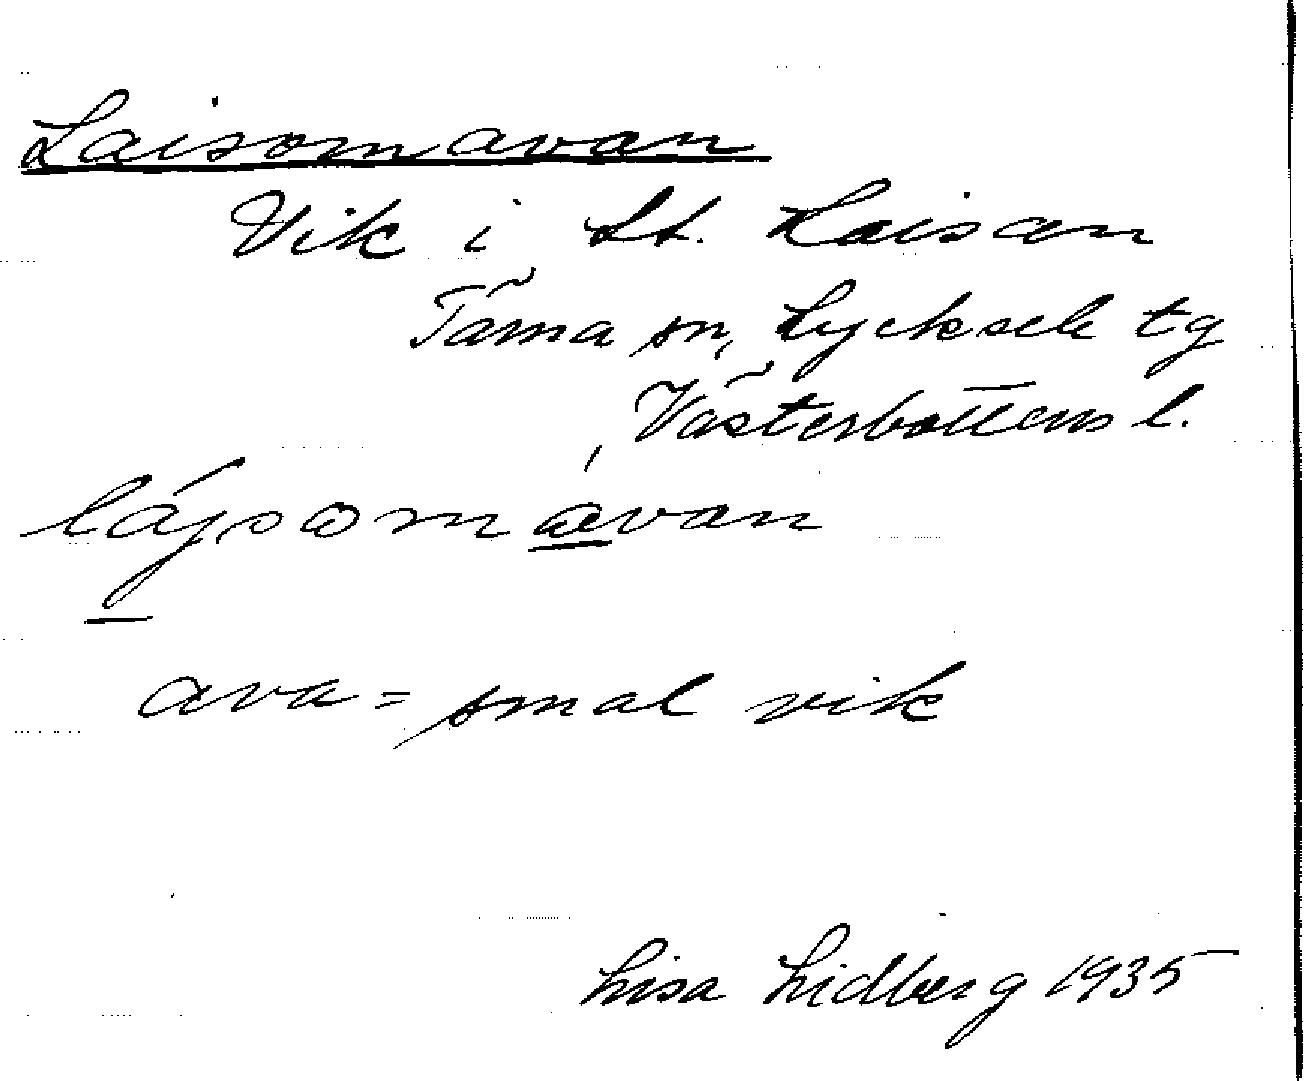 Laisomavan
Vik i St. Laisan
Tärna sn, Lycksele tg
Västerbottens l.
lájsomávan
ava = smal vik
Lisa Lidberg 1935